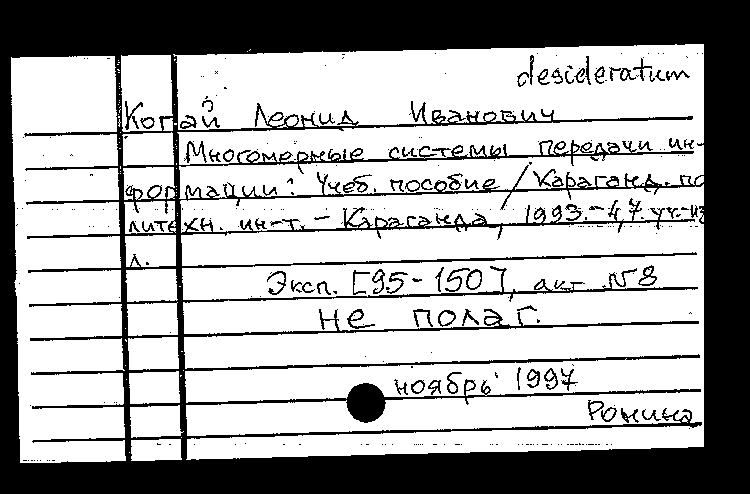 desideratum
Когай Леонид Иванович
Многомерные системы передачи ин-
формации: Учеб. пособие / Караганд. по
литехн. ин-т. - Караганда, 1993. - 4,7 уч.-из
л.
Эксп. [95-150], акт №8
не полаг.
ноябрь 1997
Ронина